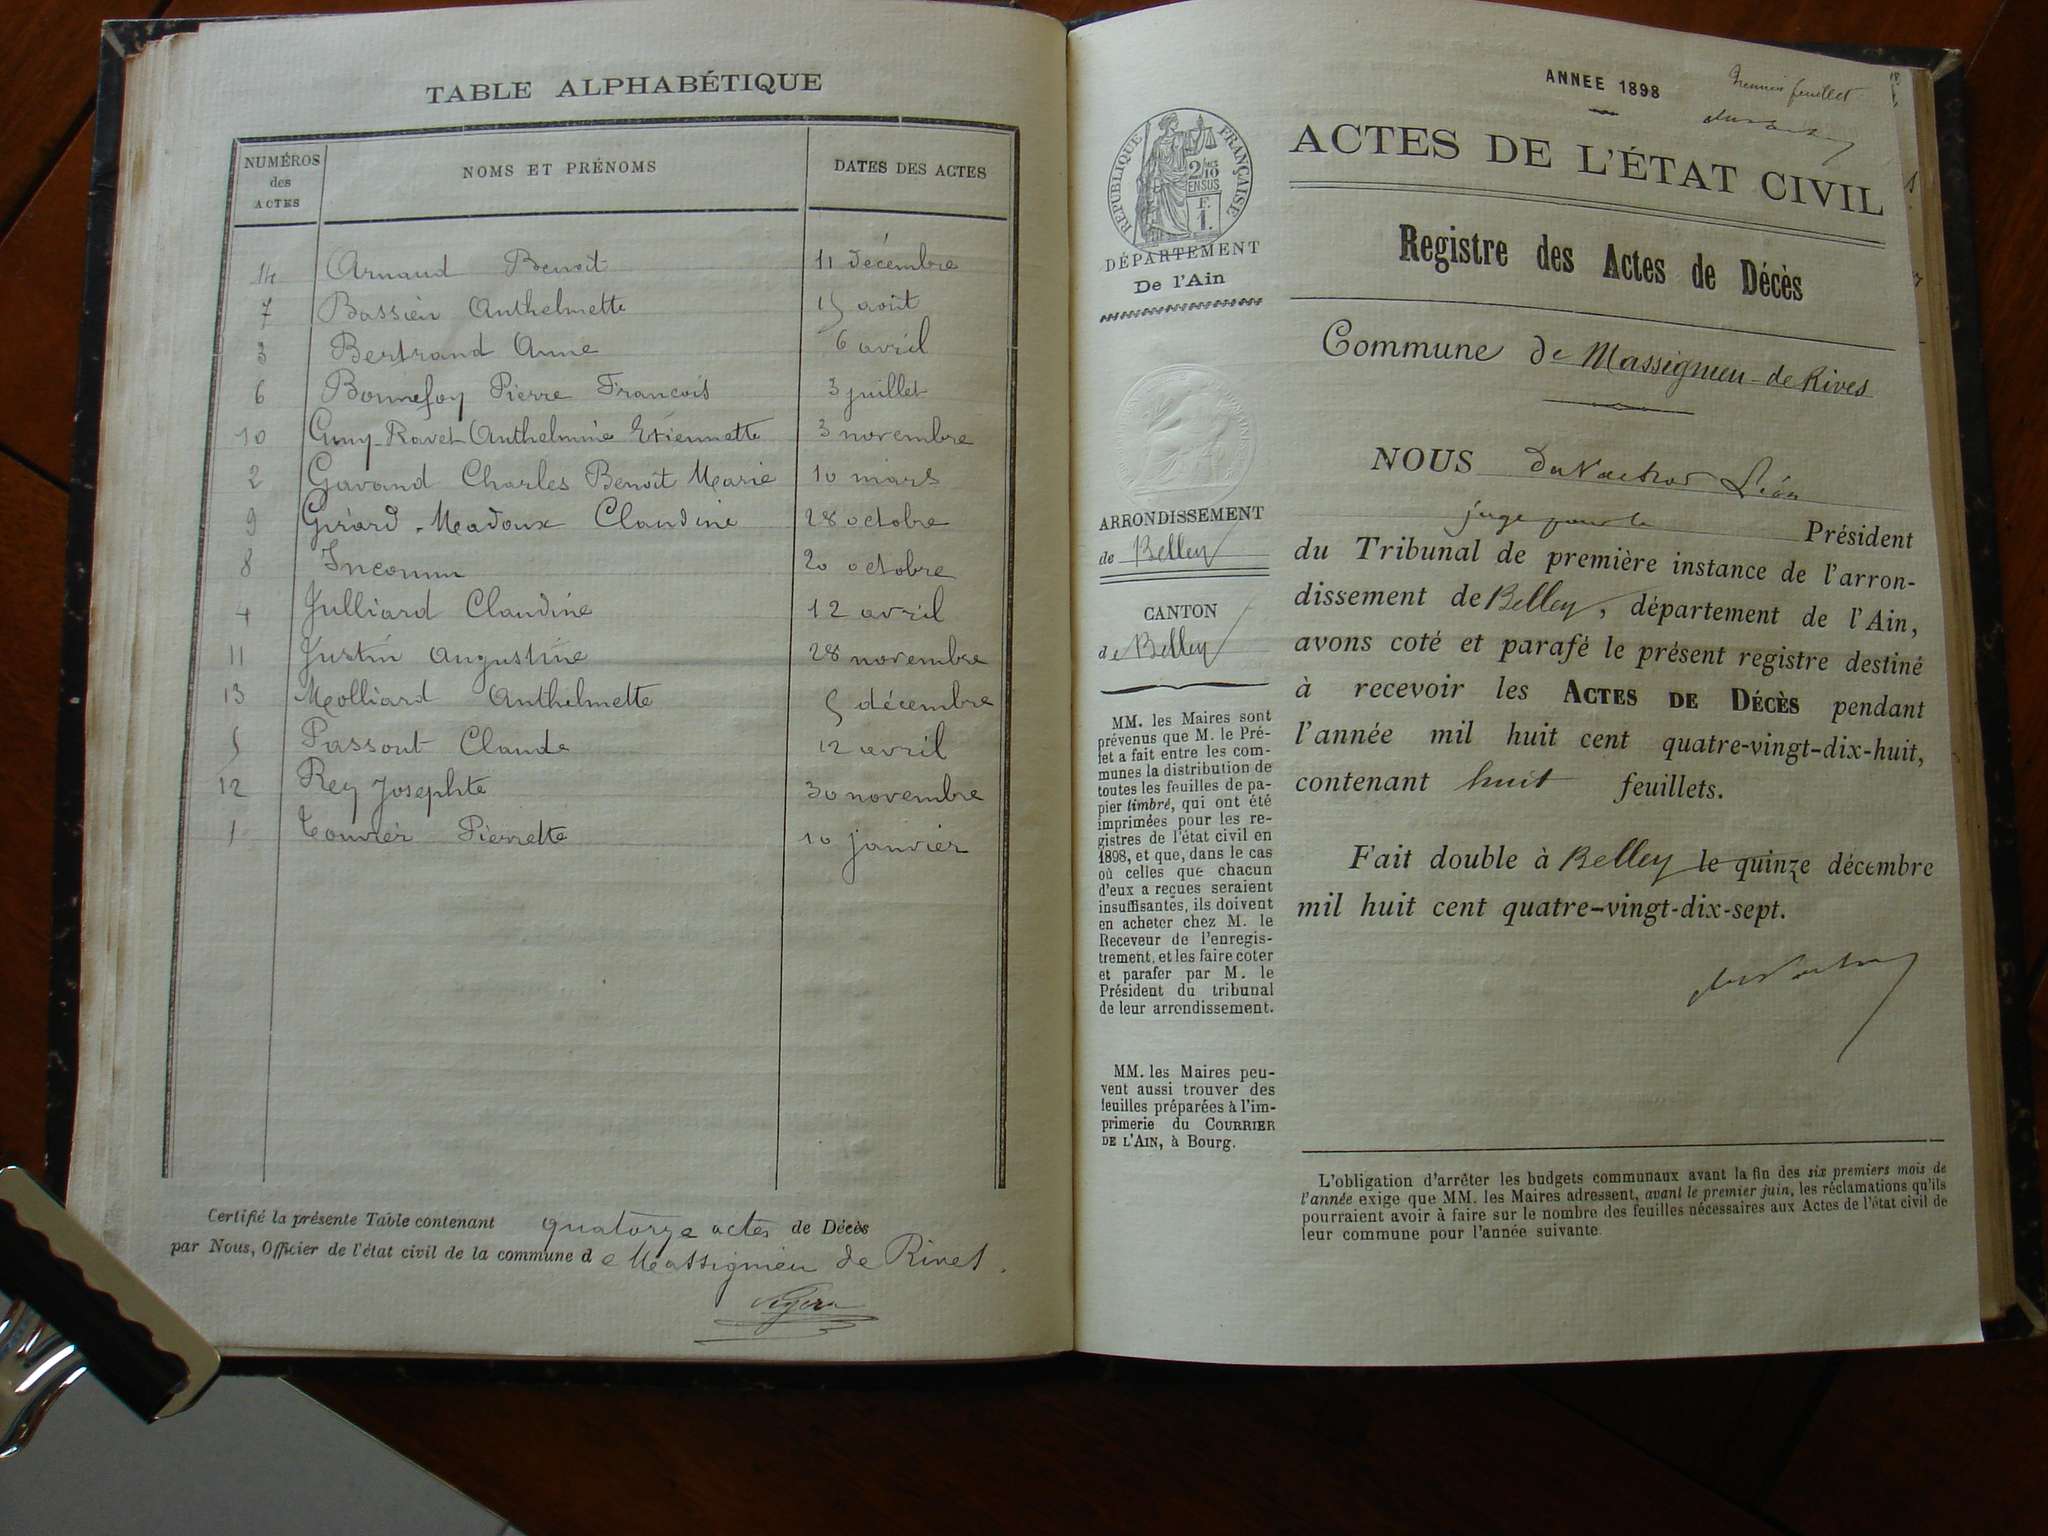 TABLE ALPHABÉTIQUE
NUMÉROS des ACTES
NOMS ET PRÉNOMS
DATES DES ACTES
14 Arnaud Benoit 11 décembre
7 Bassieu Anthelmette 15 août
3 Bertrand Anne 6 avril
6 Bonnefoy Pierre François 3 juillet
10 Guy-Ravet Anthelmine Etiennette 3 novembre
2 Gavand Charles Benoit Marie 10 mars
9 Girard-Madoux Claudine 28 octobre
8 Inconnu 20 octobre
4 Julliard Claudine 12 avril
11 Justin Augustine 28 novembre
13 Molliard Anthelmette 5 décembre
5 Passout Claude 12 avril
12 Rey Josephte 30 novembre
1 Pierrette 10 janvier
Certifié la présente Table contenant quatorze actes de Décès
par Nous, Officier de l'état civil de la commune de Massignieu de Rives.
ANNEE 1898
feuillet
ACTES DE L'ÉTAT CIVIL
Registre des Actes de Décès
Commune de Massignieu-de Rives
NOUS Léon
juge pour le Président
du Tribunal de première instance de l'arron-
dissement de Belley, département de l'Ain,
avons coté et parafé le présent registre destiné
à recevoir les ACTES DE DÉCÈS pendant
l'année mil huit cent quatre-vingt-dix-huit,
contenant huit feuillets.
Fait double à Belley le quinze décembre
mil huit cent quatre-vingt-dix-sept.
RÉPUBLIQUE FRANÇAISE
2/10
EN SUS
F.
1.
DÉPARTEMENT
De l'Ain
ARRONDISSEMENT
de Belley
CANTON
de Belley
MM. les Maires sont
prévenus que M. le Pré-
fet a fait entre les com-
munes la distribution de
toutes les feuilles de pa-
pier timbré, qui ont été
imprimées pour les re-
gistres de l'état civil en
1898, et que, dans le cas
où celles que chacun
d'eux a reçues seraient
insuffisantes, ils doivent
en acheter chez M. le
Receveur de l'enregis-
trement, et les faire coter
et parafer par M. le
Président du tribunal
de leur arrondissement.
MM. les Maires peu-
vent aussi trouver des
feuilles préparées à l'im-
primerie du COURRIER
DE L'AIN, à Bourg.
L'obligation d'arrêter les budgets communaux avant la fin des six premiers mois de
l'année exige que MM. les Maires adressent, avant le premier juin, les réclamations qu'ils
pourraient avoir à faire sur le nombre des feuilles nécessaires aux Actes de l'état civil de
leur commune pour l'année suivante.